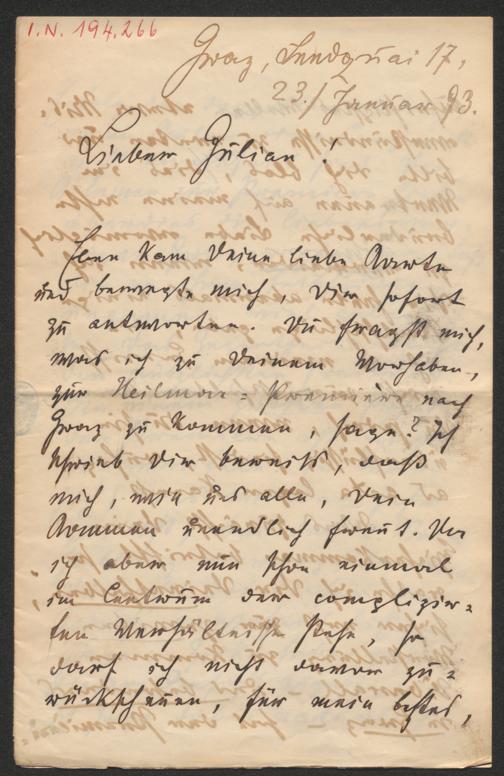 I.N. 194.266
Graz, Lendquai 17,
23./Januar 93.
Lieber Julian!
Eben kam Deine liebe Karte
und bewegte mich, Dir sofort
zu antworten. Du fragst mich,
was ich zu Deinem Vorhaben,
zur Heilmar-Première nach
Graz zu kommen, sage? Ich
schrieb Dir bereits, daß
mich, wie uns alle, Dein
Kommen unendlich freut. Da
ich aber nun schon einmal
im Centrum der complizir-
ten Verhältnisse stehe, so
darf ich nicht davor zu-
rückscheuen, für mein bestes,